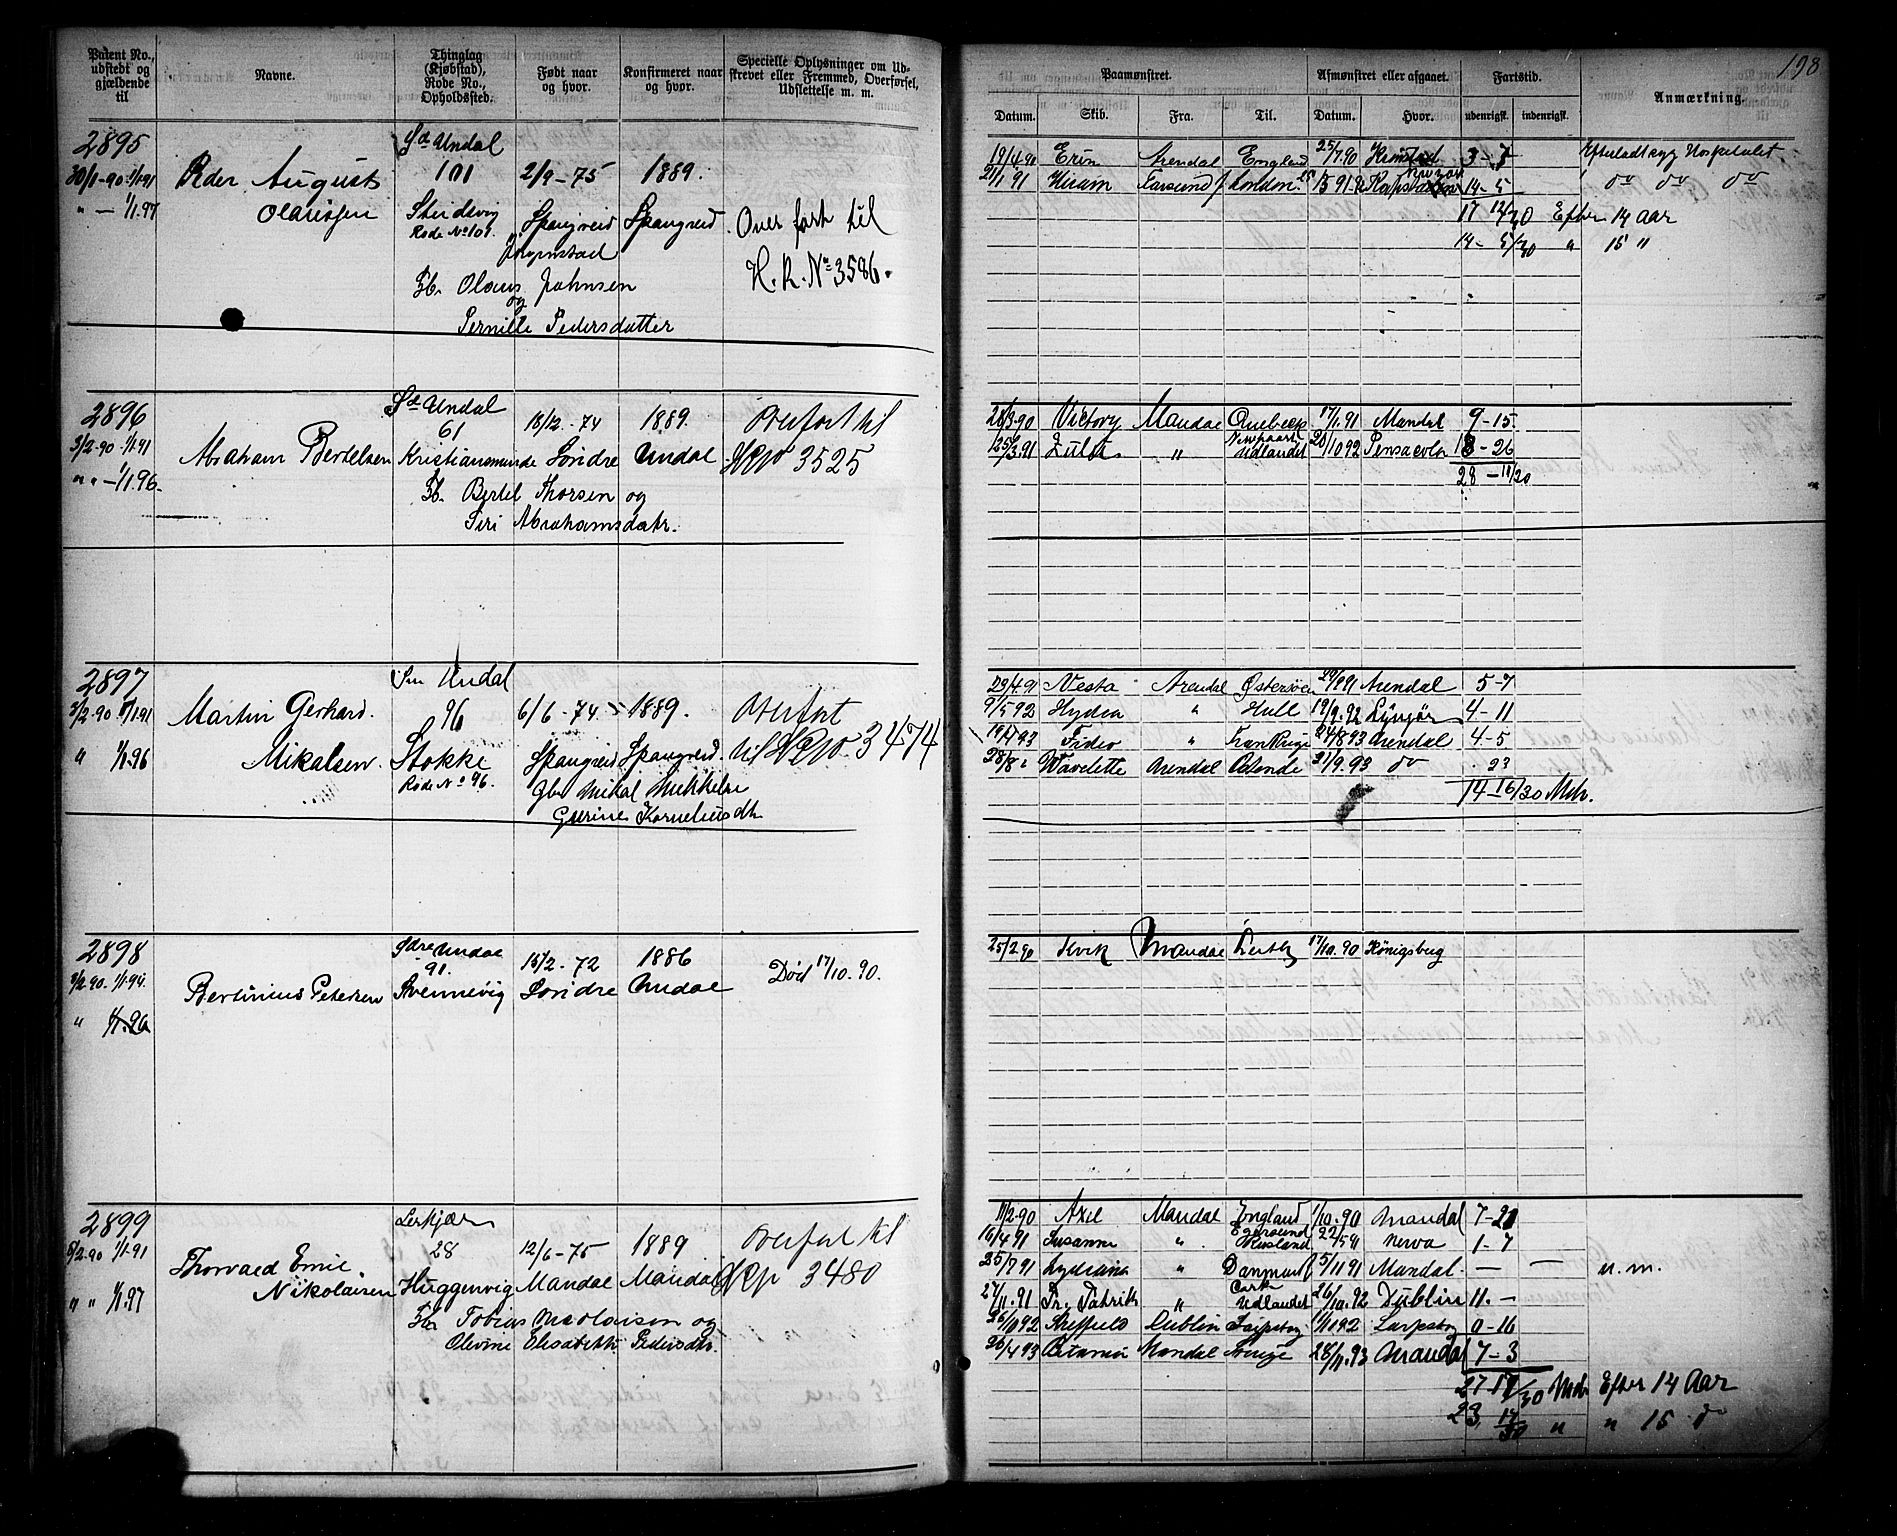 198
Patent No., udstedt og gjældende til
Navne.
Thinglag (Kjøbstad), Rode No., Opholdssted.
Født naar og hvor.
Konfirmeret naar og hvor.
Specielle Oplysninger om Udskrevet eller Fremmed, Overførsel, Udslettelse m. m.
Paamønstret.
Afmønstret eller afgaaet.
Fartstid.
Anmærkning.
Datum. Skib. Fra. Til. Datum. Hvor. udenrigsk. indenrigsk.
2895
30/1-90 1/1 91
" — 1/1. 97
Peder August
Olaussen
Sd Undal
101
Rode No 101
2/9 - 75
Spangereid
1889.
Spangereid
Over ført til
H. R. No 3586.
Fb. Olaus Johnsen
og
Pernille Pedersdatter
19/4 90 Erin Arendal England 25/7.90 3-7
21/1 91 Hiram Farsund London
14-5
17 12/30 Efter 14 Aar
14- 5/30 " 15 "
2896
3/2-90 1/1 91
" " - 1/1. 96.
Abraham Bertelsen
Sd Undal
61
Kristiansmunde
18/12. - 74
Søndre
1889.
Undal
Overført til
3525
Fb. Bertel Thorsen og
Siri Abrahamsdatr.
Victory Mandal Quebeck 17/1. 91 Mandal 9-15.
25/3.91 Zulu " Udlandet 20/10 92 Pensacola 18-26
28 - 11/30
2897
3/2.90 1/1 91
" 1/1 96
Martin Gerhard.
Mikalsen.
Sm Undal
96
Stokke
Rode No 96.
6/6 - 74
Spangreid
1889.
Spangreid
Overført
til 3474
Gb. Mikal Mikkelse
Gurine Korneliusdtr
23/4.91 Vesta Arendal Østersøen Arendal 5-7
9/5 92 Hydra " Hull 19/9. 92 Lyngør 4-11
Fideo " Frankrige 24/8 93 Arendal 4-5
28/8 " Wavelette Arendal Ostende 21/9. 93 do 23
14-16/30 Mdr.
2898
3/2.90. 1/1.94.
" 1/1.96
Bertinius Petersen
Sdre Undal
91.
Svennevig
15/2 - 72
Søndre
1886
Undal
Død 17/10. 90.
25/2 90 Kvik Mandal Leith 17/10. 90 Königsberg
2899
8/2.90 1/1.91
" " 1/1.97
Thorvald Emil
Nikolaisen
Lerkjær
28
Huggenvig
12/6 - 75
Mandal
1889
Mandal
Overført til
3480
Fb. Tobias Nicolaisen og
Olevine Elisabeth Pedersdtr.
11/2.90 Axel Mandal England 1/10. 90 Mandal 7-21
16/4 91 Susanne " Egersund Rusland 22/5 91 Nerva 1-7
25/7 91 Lydiana " Danmark 5/11 91 Mandal — — u. m.
27/11. 91 St. Patrik " Cork Udlandet 26/10. 92 Dublin 11. -
26/10 92 Sheffield Dublin 0-16
26/4 93 Mandal 28/11. 93 Mandal 7-3
27 17/30 Mdr Efter 14 Aar
23. 14/30 " " 15 do